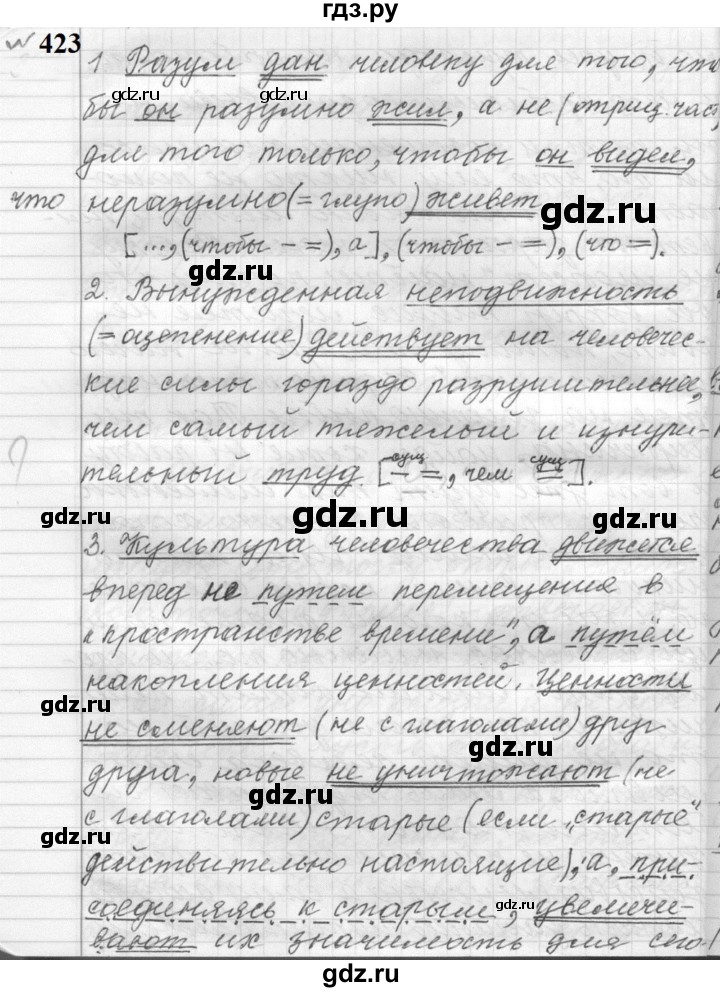 гдз.ру
423
1 Разум дан человеку для того, что
бы он разумно жил, а не (отриц. част.
для того только, чтобы он видел,
что неразумно (= глупо) живет
gdz.ru
[..., (чтобы - =), а], (чтобы - =), (что =).
gdz.ru
2. Вынужденная неподвижность
gdz.ru
(= оцепенение) действует на человечес-
gdz.ru
кие силы гораздо разрушительнее,
чем самый тяжелый и изнури-
gdz.ru
тельный труд. [сущ. - =, чем сущ. =].
gdz.ru
gdz.ru
3. Культура человечества движется
вперед не путем перемещения в
gdz.ru
„пространстве времени", а путём
накопления ценностей. Ценности
gdz.ru
не сменяют (не с глаголами) друг
gdz.ru
друга, новые не уничтожают (не
gdz.ru
с глаголами) старые (если „старые"
действительно настоящие), а, при-
gdz.ru
gdz.ru
соединяясь к старым, увеличи-
вают их значимость для сего-
gdz.ru
gdz.ru